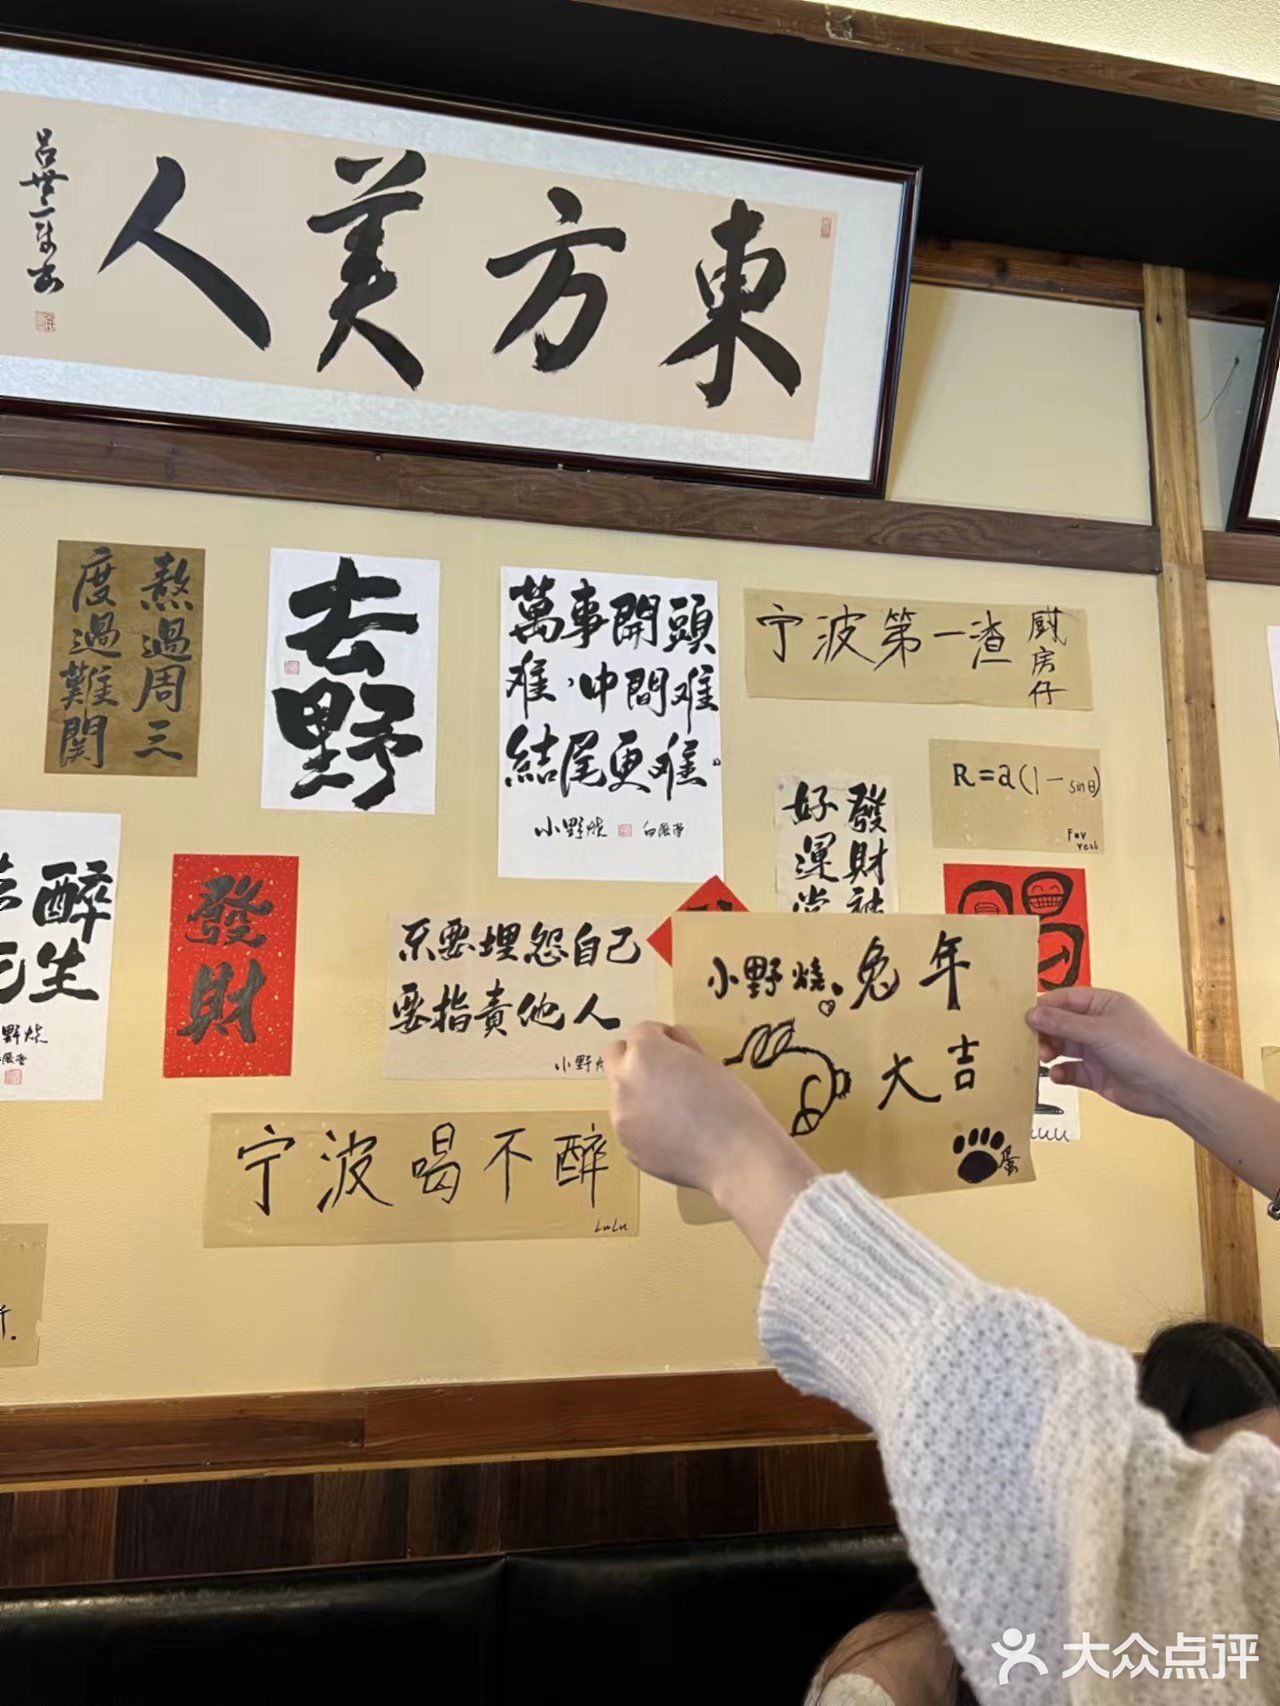 東方美人
呂世
熬過周三
度過難関
去野
萬事開頭
难，中間难
結尾更难。
小野烧
宁波第一渣
厨房仔
R=a(1-sinθ)
發財神
好運當
醉
生
野烧
發財
不要埋怨自己
要指責他人
小野
小野燒 兔年
大吉
蛋
宁波喝不醉
LuLu
大众点评